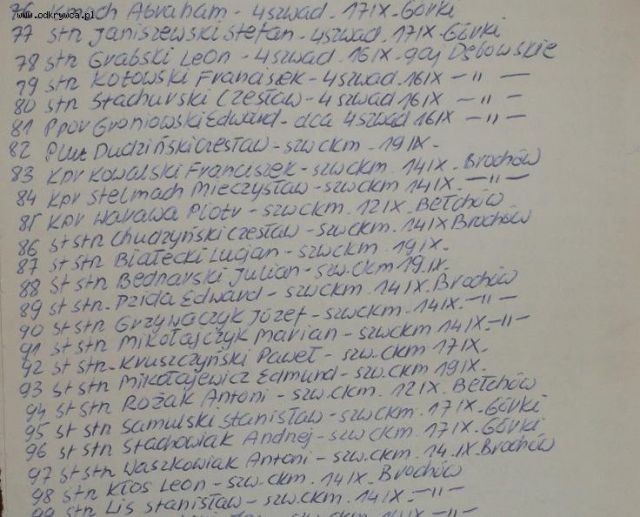 www.odkrywca.pl
76 Kmoch Abraham - 4 szwad. 17 IX - Górki
77 stn Janiszewski Stefan - 4 szwad. 17 IX - Górki
78 stn Grabski Leon - 4 szwad. 16 IX - gaj Dębowskie
79 stn Kotowski Franciszek - 4 szwad. 16 IX - " -
80 stn Stachurski Czesław - 4 szwad 16 IX - " -
81 Ppor Groniowski Edward - dca 4 szwad 16 IX - " -
82 Plut Dudziński Czesław - szw ckm. 19 IX.
83 Kpr Kowalski Franciszek - szw ckm. 14 IX. Brochów
84 Kpr Stelmach Mieczysław - szw ckm 14 IX. - " -
85 Kpr Warawa Piotr - szw ckm. 12 IX. Bełchów.
86 st stn Chudzyński Czesław - szw ckm. 14 IX Brochów
87 st stn Białecki Lucjan - szw ckm. 19 IX.
88 st stn Bednarski Julian - szw. ckm 19 IX.
89 st stn. Pzida Edward - szw ckm. 14 IX. Brochów
90 st stn Grzywaczyk Józef - szw ckm. 14 IX. - " -
91 st stn Mikołajczyk Marian - szw ckm 14 IX. - " -
92 st stn. Kruszczyński Paweł - szw. ckm 17 IX.
93 st stn Mikołajewicz Edmund - szw ckm 19 IX.
94 st stn Rożak Antoni - szw. ckm. 12 IX. Bełchów
95 st stn Samulski Stanisław - szw ckm. 17 IX. Górki
96 st stn Stachowiak Andrzej - szw ckm. 17 IX. Górki
97 st stn Waszkowiak Antoni - szw ckm. 14. IX. Brochów
98 stn Kłos Leon - szw. ckm. 14 IX. Brochów
99 stn Lis Stanisław - szw. ckm. 14 IX. - " -